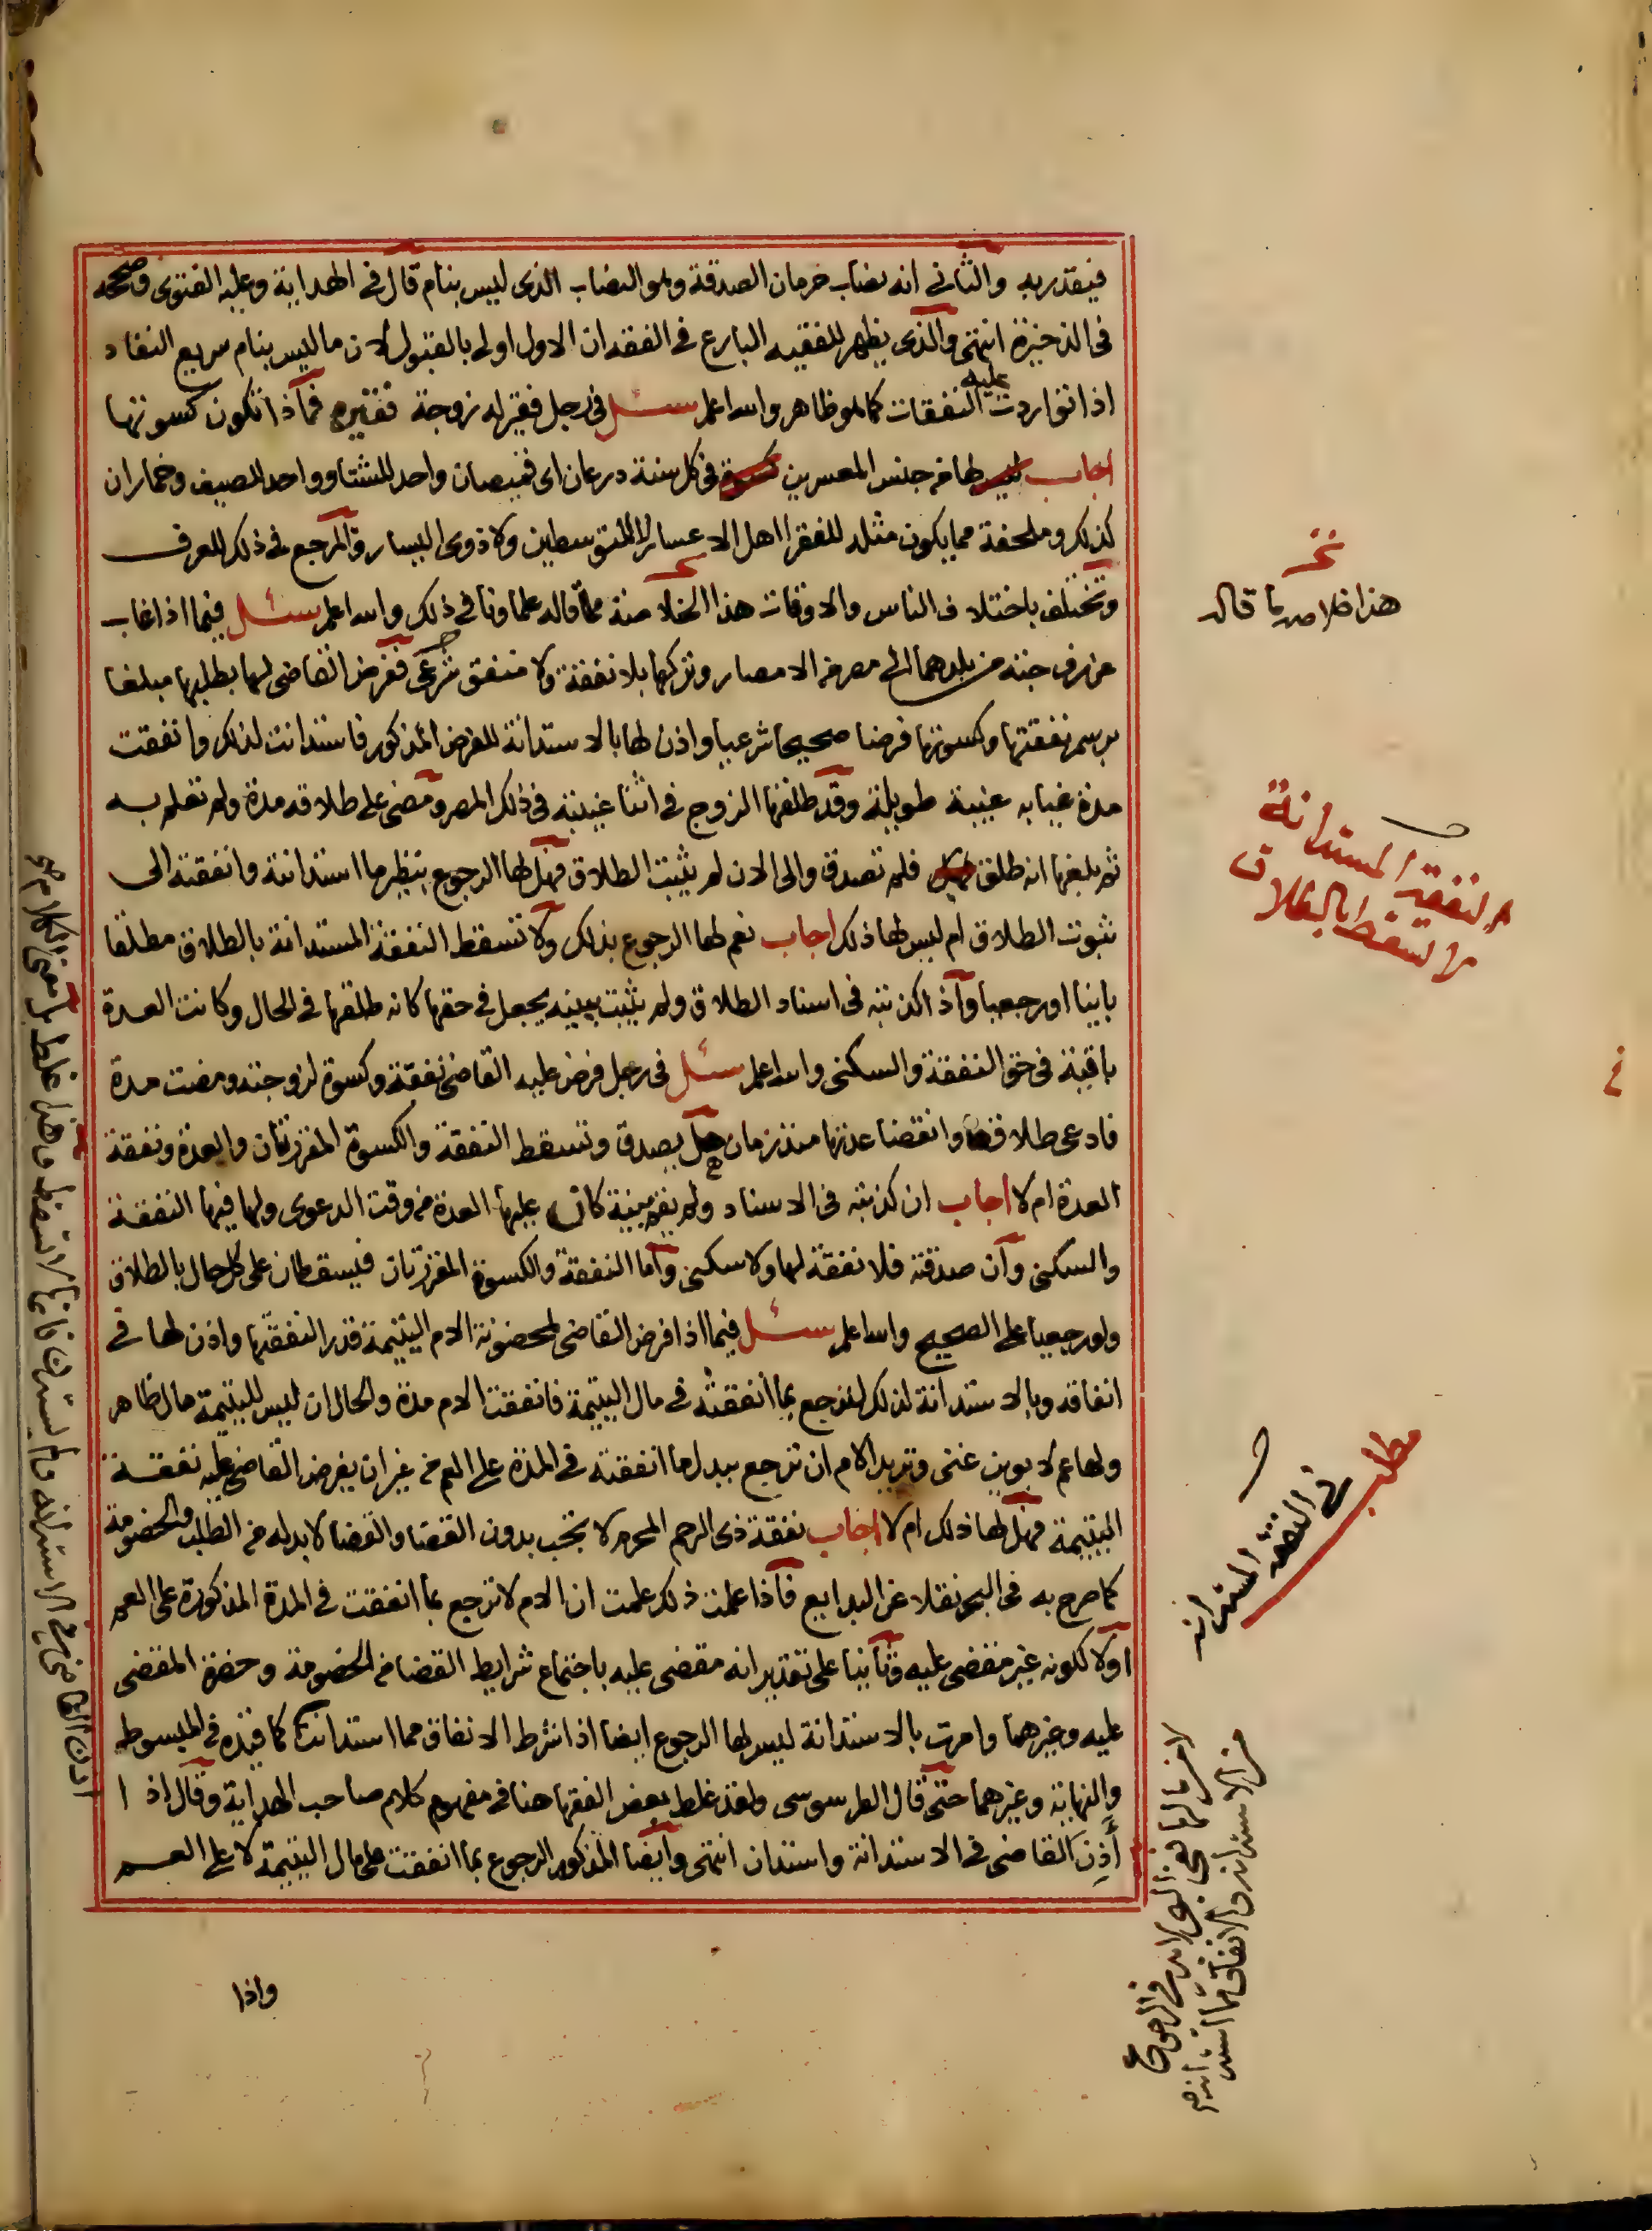 فيقدر به والثاني انه نصاب حرمان الصدقة وهو النصاب الذى ليس بنام قال فى الهداية وعليه الفتوى وصححه
فى الذخيرة انتهى والذى يظهر للفقيه البارع فى الفقه ان الاول اولى بالقبول لان ما ليس بنام سريع النفاد
اذا تواردت عليه النفقات كما هو ظاهر والله اعلم سئل فى رجل فقير له زوجة فقيرة فماذا تكون كسوتها
اجاب لها من جنس المعسرين فى كل سنة درعان اى قميصان واحد للشتا وواحد للصيف وخماران
كذلك وملحفة مما يكون مثله للفقرا اهل الاعسار لا المتوسطين ولا ذوى اليسار والمرجع فى ذلك للعرف
وتختلف باختلاف الناس والاوقات هذا الخلاصة مما قاله علماونا فى ذلك والله اعلم سئل فيما اذا غاب
عن زوجته من بلدهما الى مصر من الامصار وتركها بلا نفقة ولا منفق شرعى ففرض القاضى لها بطلبها مبلغا
برسم نفقتها وكسوتها فرضا صحيحا شرعيا واذن لها بالاستدانة للفرض المذكور فاستدانت لذلك وانفقت
مدة غيابه غيبة طويلة وقد طلقها الزوج فى اثنا غيبته فى ذلك المصر ومضى على طلاقه مدة ولم تعلم به
ثم بلغها انه طلق فلم تصدق والى الان لم يثبت الطلاق فهل لها الرجوع بنظير ما استدانته وانفقته الى
ثبوت الطلاق ام ليس لها ذلك اجاب نعم لها الرجوع بذلك ولا تسقط النفقة المستدانة بالطلاق مطلقا
باينا او رجعيا واذا كذبته فى اسناد الطلاق ولم يثبت ببينة يجعل فى حقها كانه طلقها فى الحال وكانت العدة
باقية فى حق النفقة والسكنى والله اعلم سئل فى رجل فرض عليه القاضى نفقة وكسوة لزوجته ومضت مدة
فادعى طلاقها وانقضا عدتها منذ زمان هل يصدق وتسقط النفقة والكسوة المقررتان والعدة ونفقة
العدة ام لا اجاب ان كذبته فى الاسناد ولم يقم بينة كان عليها العدة من وقت الدعوى ولها فيها النفقة
والسكنى وان صدقته فلا نفقة لها ولا سكنى واما النفقة والكسوة المقررتان فيسقطان على كل حال بالطلاق
ولو رجعيا على الصحيح والله اعلم سئل فيما اذا فرض القاضى لمحضونة الام اليتيمة قدرا لنفقتها واذن لها فى
انفاقه وبالاستدانة لذلك لترجع بما انفقته فى مال اليتيمة فانفقت الام مدة والحال ان ليس لليتيمة مال ظاهر
ولها عم لابوين غنى وتريد الام ان ترجع ببدل ما انفقته فى المدة على العم من غير ان يفرض القاضى عليه نفقة
اليتيمة فهل لها ذلك ام لا اجاب نفقة ذى الرحم المحرم لا تجب بدون القضا والقضا لا بد له من الطلب والخصومة
كما صرح به فى البحر نقلا عن البدايع فاذا علمت ذلك علمت ان الام لا ترجع بما انفقت فى المدة المذكورة على العم
اولا لكونه غير مقضى عليه وثانيا على تقدير انه مقضى عليه باجتماع شرايط القضا من الخصومة وحضرة المقضى
عليه وغيرهما وامرت بالاستدانة ليس لها الرجوع ايضا اذا شرط الانفاق مما استدانت كما قيده فى المبسوط
والنهاية وغيرهما حتى قال الطرسوسى ولقد غلط بعض الفقها هنا فى مفهوم كلام صاحب الهداية وقال اذا
أَذِنَ القاضى فى الاستدانة واستدان انتهى وايضا المذكور الرجوع بما انفقت على مال اليتيمة لا على العم
واذا
هذا خلاصة ما قاله
النفقة المستدانة
لا تسقط بالطلاق
مطلب
فى النفقة المستدانة